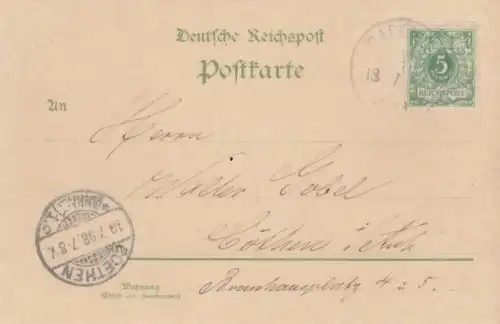 Deutsche Reichspost
Postkarte
5
REICHSPOST
18 7
An
Herrn
Walter Göbel
Cöthen i. Anh
19 7 98 7-8 V.
COETHEN
Wohnung
(Straße und Hausnummer)
4 u 5.